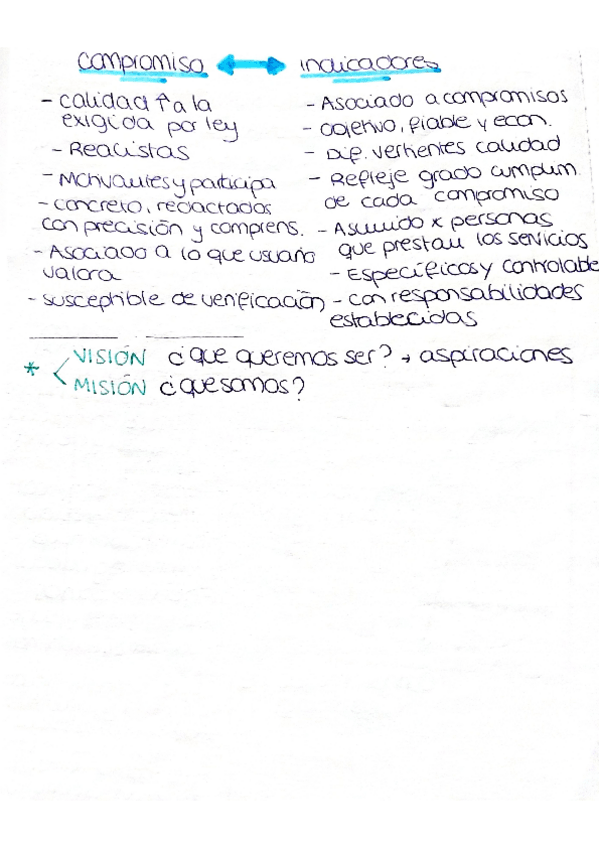 Compromiso ↔ indicadores
- calidad ↑ a la
exigida por ley
- Realistas
- Motivantes y participa
- concreto, redactados
con precisión y comprens.
- Asociado a lo que usuario
valora
- susceptible de verificación
- Asociado a compromisos
- objetivo, fiable y econ.
- Dif. vertientes calidad
- Refleje grado cumplim.
de cada compromiso
- Asumido x personas
que prestan los servicios
- Específicos y controlable
- con responsabilidades
establecidas
* VISIÓN ¿que queremos ser? → aspiraciones
MISIÓN ¿que somos?